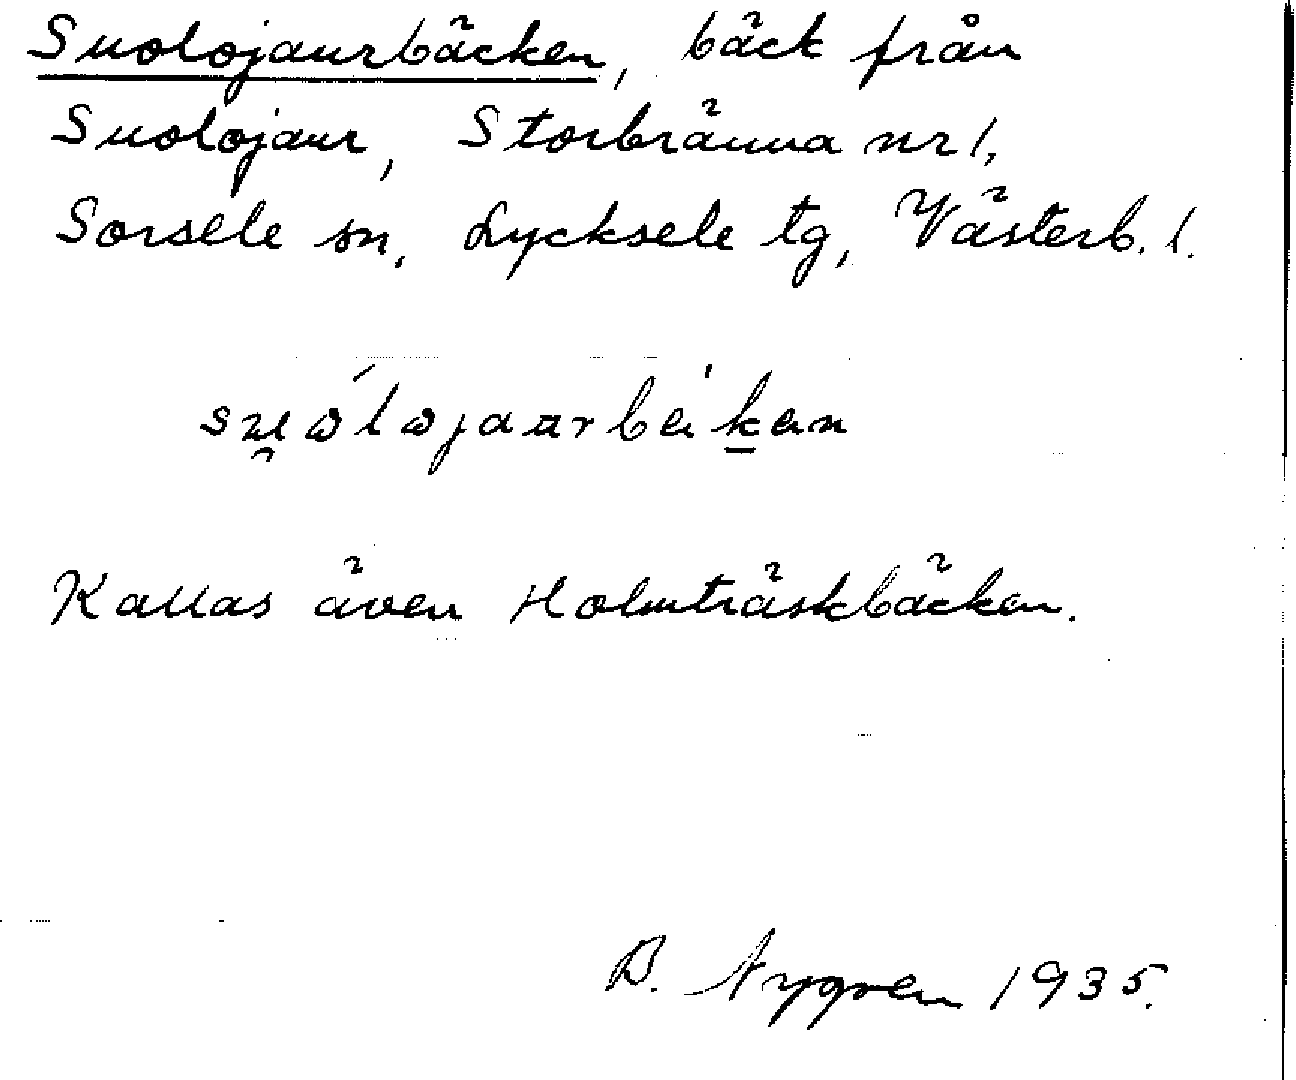 Suolojaurbäcken, bäck från
Suolojaur, Storbränna nr 1,
Sorsele sn, Lycksele tg, Västerb. l.
Kallas även Holmträskbäcken.
B. Nygren 1935.